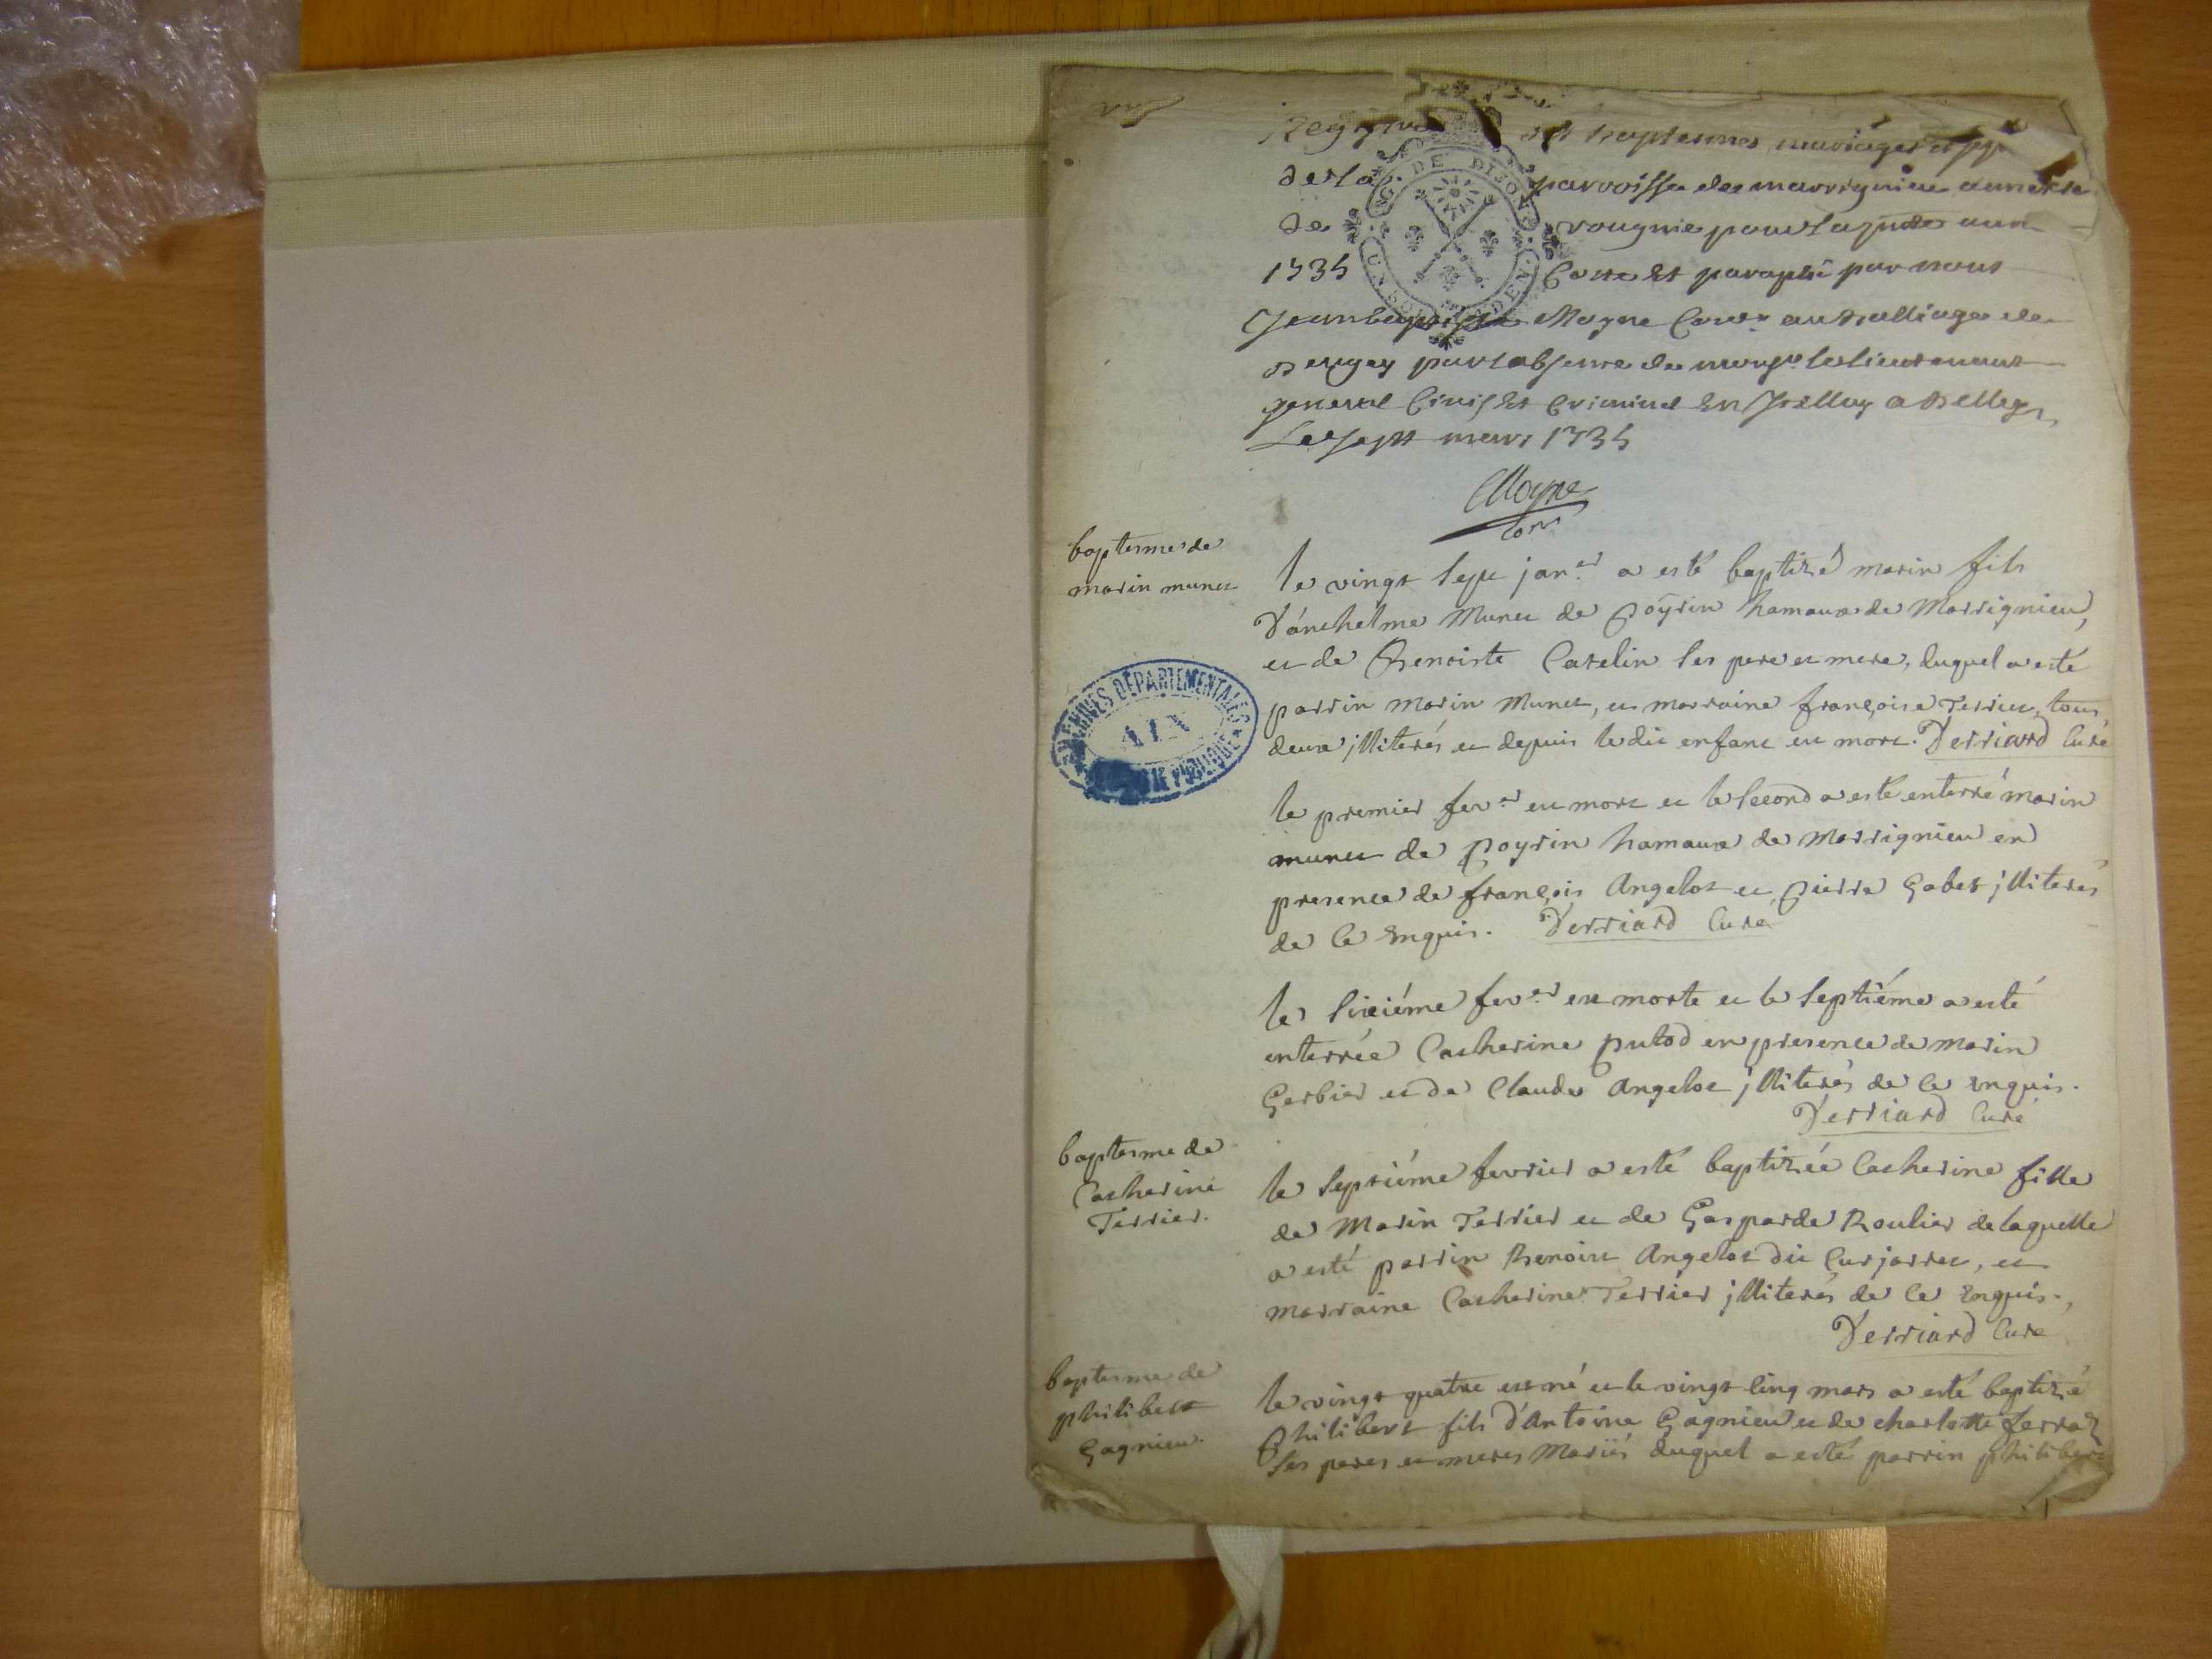 Registre des baptesmes, mariages et
de la parroisse de marrignieu annexe
de vougnie pour la pnte année
1735 Cotté Et paraphé par nous
Jean baptiste Moyne Conser au Bailliage de
Beugey pour l'absence de monsr le lieutenant
general Civil Et Criminel En Icelluy a Belley
Le sept mars 1735
Moyne
Conser
baptesme de
marin munet
le vingt sept janer a esté baptizé marin fils
d'anthelme Munet de Poÿrin hamaux de Marrignieu,
et de Benoiste Carelin ses pere et mere, duquel a esté
parrin Marin Munet, et marraine françoise Terrier, tous
deux jlliterés et depuis ledit enfant est mort. Derriard Curé
ARCHIVES DÉPARTEMENTALES
AIN
le premier fever est mort et le second a esté enterré marin
munet de Poyrin hamaux de Marrignieu en
presence de françois Angelot et Pierre Gabet jlliterés
de ce Enquis. Derriard Curé
le sixiéme fever est morte et le septiéme a esté
enterrée Catherine Putod en presence de marin
Gerbier et de Claude Angelot jlliterés de ce Enquis.
Derriard Curé
baptesme de
Catherine
Terrier.
le septiéme fevrier a esté baptizée Catherine fille
de Marin Terrier et de Gasparde Roulier de laquelle
a esté parrin Benoist Angelot dit Curjarret, et
marraine Catherine Terrier jlliterés de ce Enquis.,
Derriard Curé
baptesme de
philibert
Gagnieu.
le vingt quatre est né et le vingt cinq mars a esté baptizé
Philibert fils d'Antoine Gagnieu et de charlotte ferraz
ses peres et meres Mariés duquel a esté parrin philibert